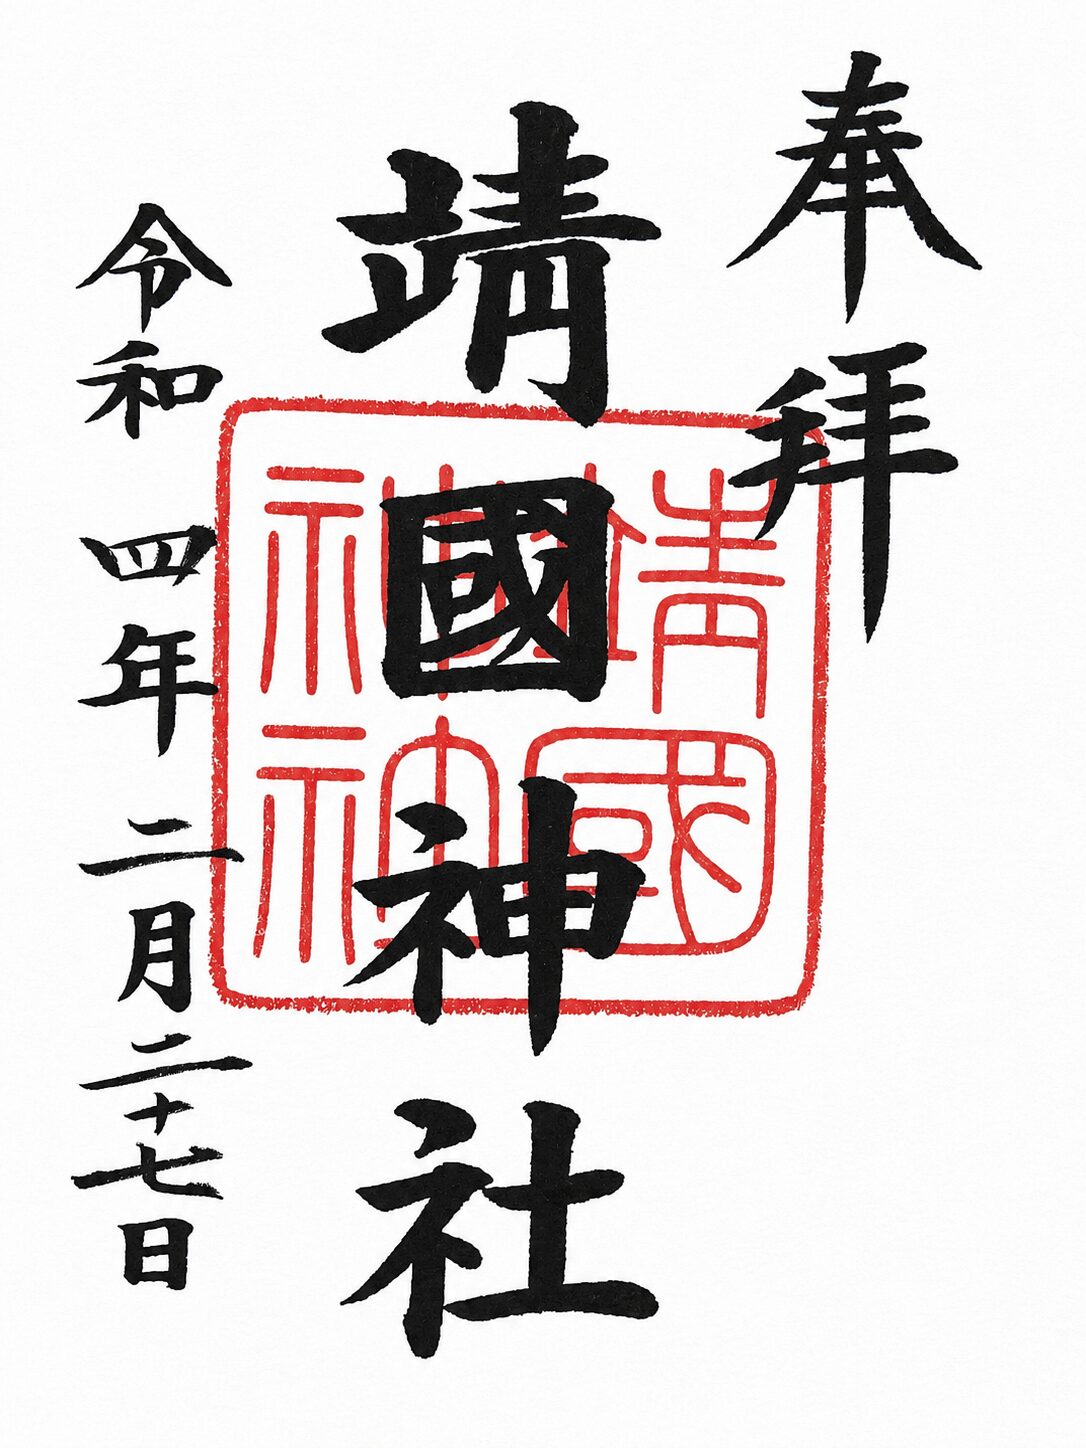 奉拜
靖國神社
令和四年二月二十七日